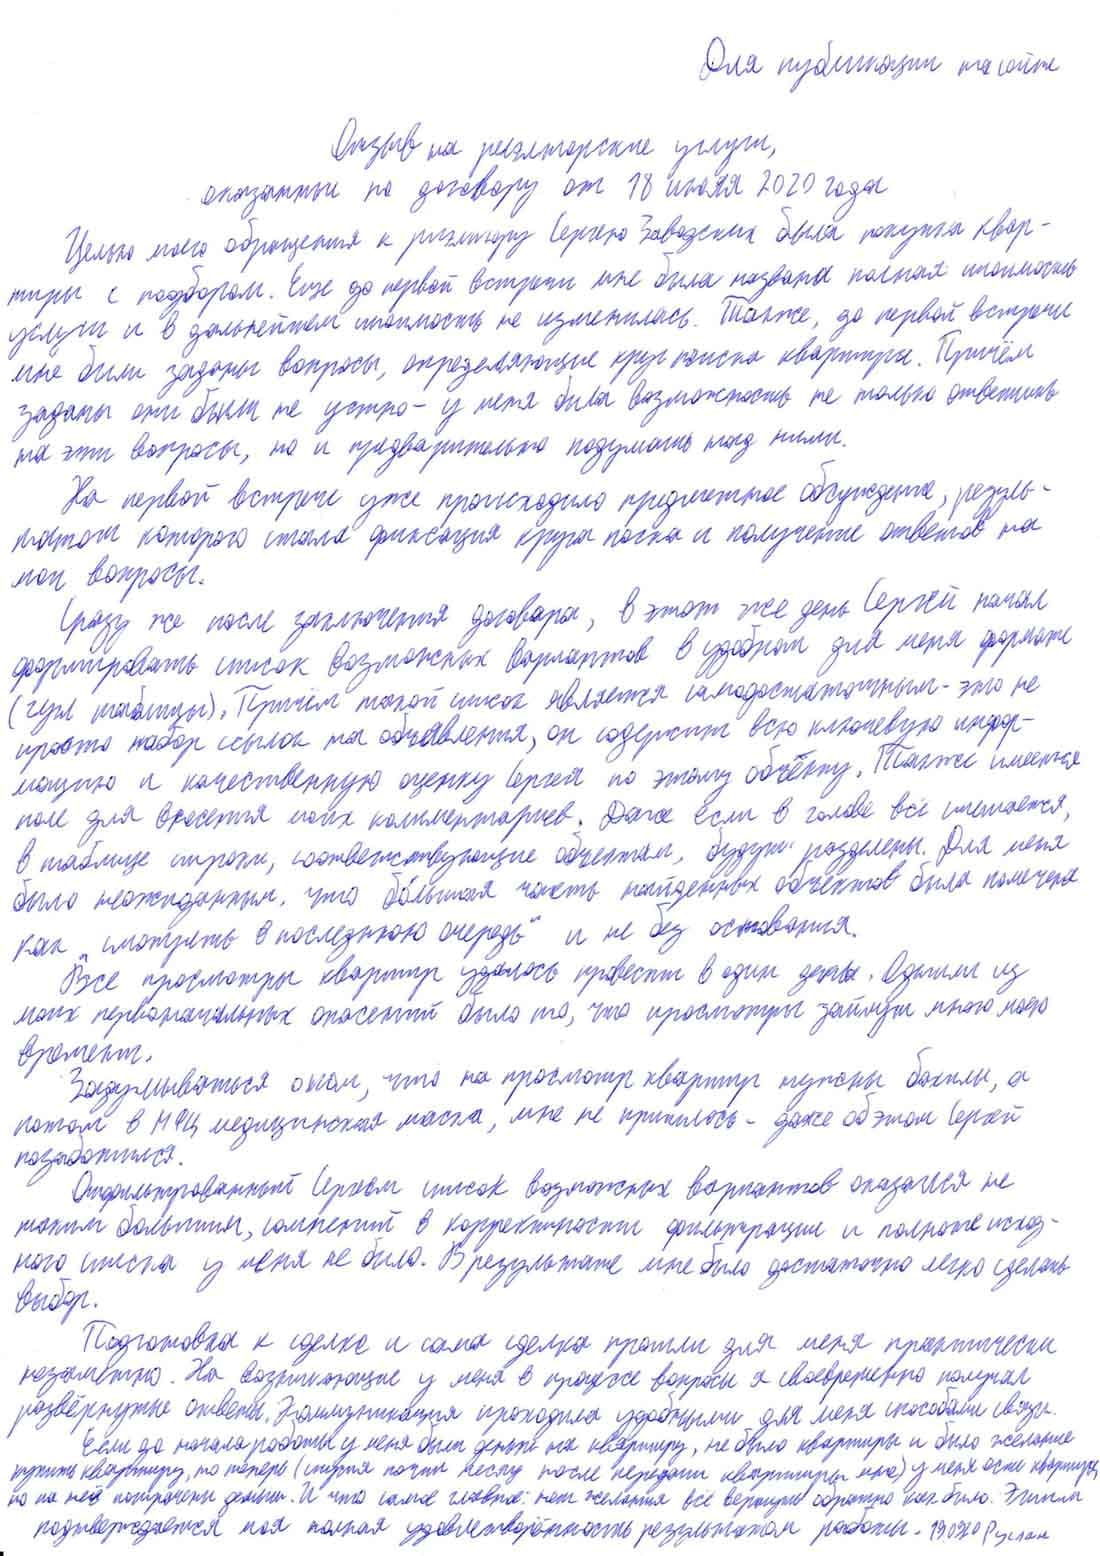 Для публикации на сайте
Отзыв на риэлторские услуги,
оказанные по договору от 18 июля 2020 года
Целью моего обращения к риэлтору Сергею Заводских была покупка квар-
тиры с подбором. Еще до первой встречи мне была названа полная стоимость
услуги и в дальнейшем стоимость не изменилась. Также, до первой встречи
мне были заданы вопросы, определяющие круг поиска квартиры. Причём
заданы они были не устно - у меня была возможность не только ответить
на эти вопросы, но и предварительно подумать над ними.
На первой встрече уже происходило предметное обсуждение, резуль-
татом которого стала фиксация круга поиска и получение ответов на
мои вопросы.
Сразу же после заключения договора, в этот же день Сергей начал
формировать список возможных вариантов в удобном для меня формате
(гугл таблицы). Причём такой список является самодостаточным - это не
просто набор ссылок на объявления, он содержит всю ключевую инфор-
мацию и качественную оценку Сергея по этому объекту. Также имеется
поле для внесения моих комментариев. Даже если в голове всё смешается,
в таблице строки, соответствующие объектам, будут разделены. Для меня
было неожиданным, что бо́льшая часть найденных объектов была помечена
как "смотреть в последнюю очередь" и не без основания.
Все просмотры квартир удалось провести в один день. Одним из
моих первоначальных опасений было то, что просмотры займут много моего
времени.
Задумываться о том, что на просмотр квартир нужны бахилы, а
потом в МФЦ медицинская маска, мне не пришлось - даже об этом Сергей
позаботился.
Отфильтрованный Сергеем список возможных вариантов оказался не
таким большим, сомнений в корректности фильтрации и полноте исход-
ного списка у меня не было. В результате мне было достаточно легко сделать
выбор.
Подготовка к сделке и сама сделка прошли для меня практически
незаметно. На возникающие у меня в процессе вопросы я своевременно получал
развёрнутые ответы. Коммуникация проходила удобными для меня способами связи.
Если до начала работы у меня были деньги на квартиру, не было квартиры и было желание
купить квартиру, то теперь (спустя почти месяц после передачи квартиры мне) у меня есть квартира,
но на неё потрачены деньги. И что самое главное: нет желания всё вернуть обратно как было. Этим
подтверждается моя полная удовлетворённость результатом работы. 19.09.20 Руслан